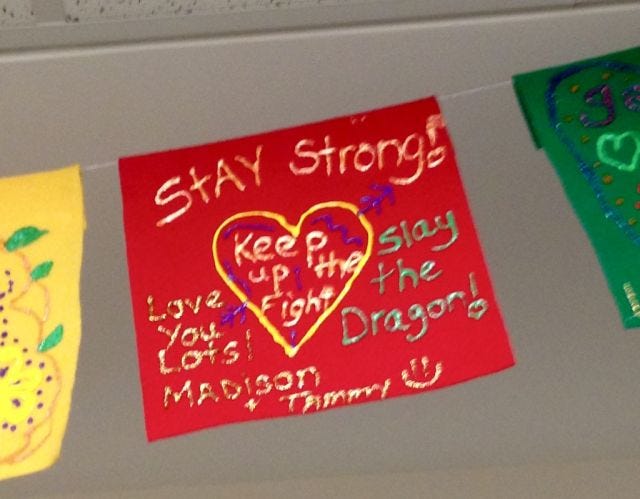 StAY Strong!
Keep
up the
Fight
Slay
the
Dragon!
Love
You
Lots!
MADISON
+ TAMMY